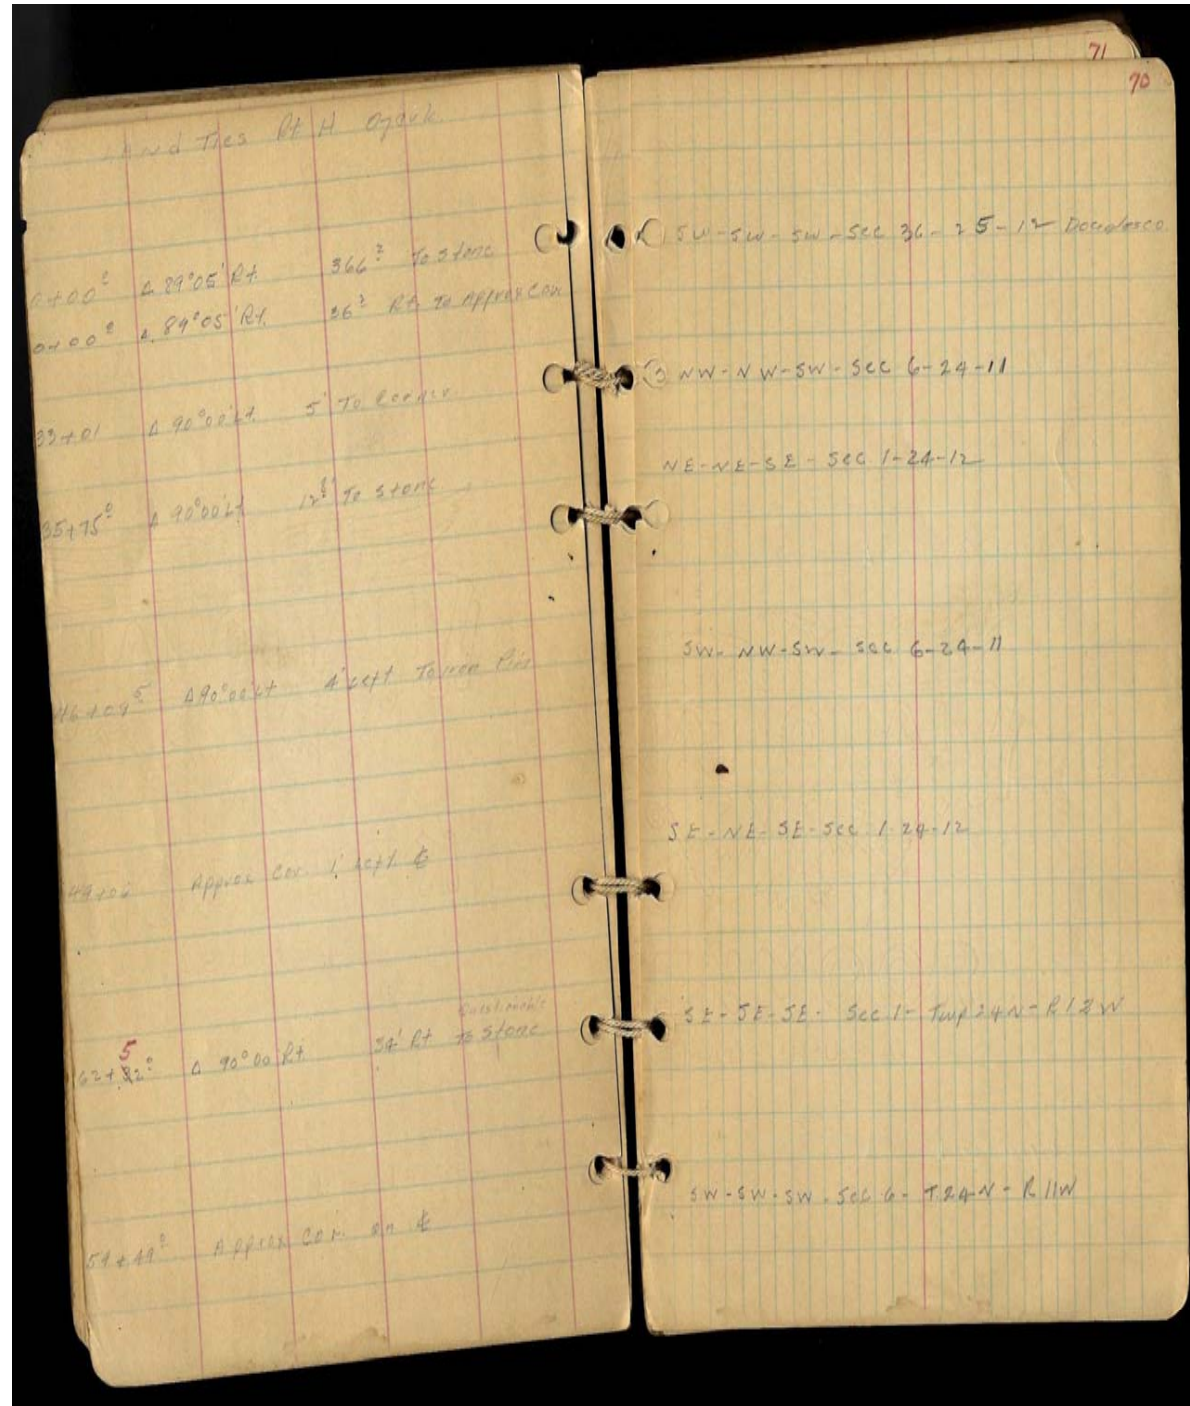 Land Ties Rt H Ozark
0+00⁰ Δ 89°05' Rt. 366² To Stone
0+00⁰ Δ 89°05' Rt. 36² Rt. To Approx Cor
33+01 Δ 90°00' Lt. 5' To Corner
35+75⁰ Δ 90°00' Lt 12⁵' To Stone
46+04⁵ Δ 90°00' Lt 4' Left To Iron Pin
Approx Cor. 1' Left ℄
Questionable
5
62+82⁰ Δ 90°00 Rt. 34' Rt To Stone
Approx Cor. on ℄
71
70
SW-SW-SW-Sec 36-25-12 Douglas Co
NW-NW-SW-Sec 6-24-11
NE-NE-SE-Sec 1-24-12
SW-NW-SW-Sec 6-24-11
SE-NE-SE-Sec 1-24-12
SE-SE-SE- Sec 1- Twp 24N-R12W
SW-SW-SW-Sec 6- T24-N-R11W